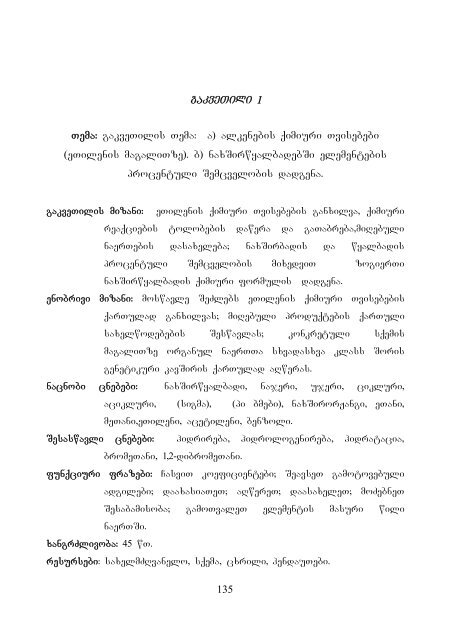 გაკვეთილი I
თემა: გაკვეთილის თემა: ა) ალკენების ქიმიური თვისებები
(ეთილენის მაგალითზე). ბ) ნახშირწყალბადებში ელემენტების
პროცენტული შემცველობის დადგენა.
გაკვეთილის მიზანი: ეთილენის ქიმიური თვისებების განხილვა, ქიმიური
რეაქციების ტოლობების დაწერა და გათაბრება,მიღებული
ნაერთების დასახელება; ნახშირბადის და წყალბადის
პროცენტული შემცველობის მიხედვით ზოგიერთი
ნახშირწყალბადის ქიმიური ფორმულის დადგენა.
ენობრივი მიზანი: მოსწავლე შეძლებს ეთილენის ქიმიური თვისებების
ქართულად განხილვას; მიღებული პროდუქტების ქართული
სახელწოდებების შესწავლას; კონკრეტული სქემის
მაგალითზე ორგანულ ნაერთთა სხვადასხვა კლასს შორის
გენეტიკური კავშირის ქართულად აღწერას.
ნაცნობი ცნებები: ნახშირწყალბადი, ნაჯერი, უჯერი, ციკლური,
აციკლური, (სიგმა), (პი ბმები), ნახშირორჟანგი, ეთანი,
მეთანი,ეთილენი, აცეტილენი, ბენზოლი.
შესასწავლი ცნებები: ჰიდრირება, ჰიდროლოგენირება, ჰიდრატაცია,
ბრომეთანი, 1,2-დიბრომეთანი.
ფუნქციური ფრაზები: ჩასვით კოეფიციენტები; შეავსეთ გამოტოვებული
ადგილები; დაახასიათეთ; აღწერეთ; დაასახელეთ; მოძებნეთ
შესაბამისობა; გამოთვალეთ ელემენტის მასური წილი
ნაერთში.
ხანგრძლივობა: 45 წთ.
რესურსები: სახელმძღვანელო, სქემა, ცხრილი, ჰენდაუთები.
135